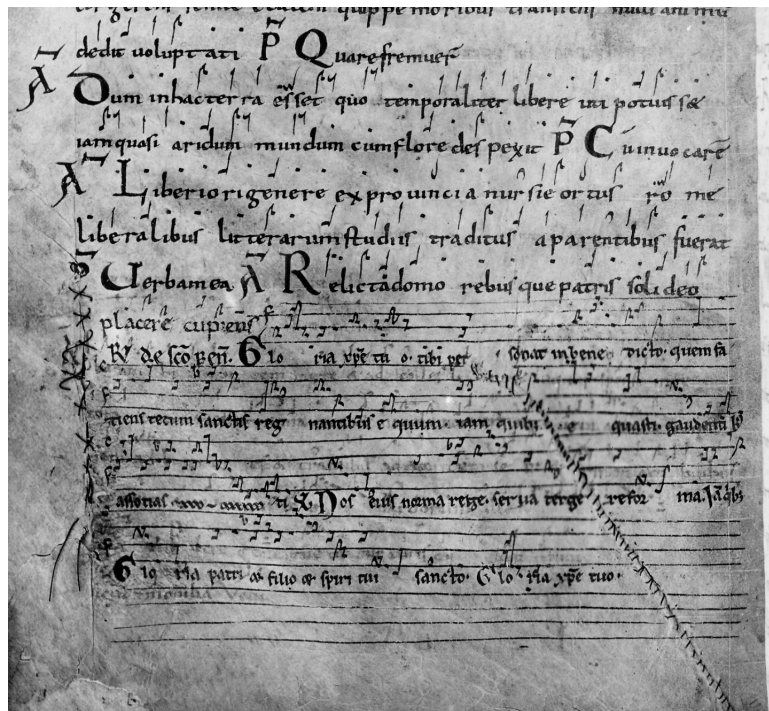 dedit uoluptati P̃ Quare fremuer̃
Ã Dum in hac terra eẽsset quo temporaliter libere uti potuisse
iam quasi aridum mundum cum flore despexit P̃ Cũ inuocarẽ
Ã Liberiori genere ex prouincia nursie ortus rome
liberalibus litterarum studiis traditus a parentibus fuerat
P̃ Uerba mea Ã Relicta domo rebusque patris soli deo
placere cupiens
R de sc̃o ben̄. Glo ria xp̃e tu o. tibi per sonat in bene dicto. quem fa
tiens tecum sanctis reg nantibus e quum. iam quibus e quasti. gaudenti
assotias ti V̄ Nos eius norma rege. serua terge refor ma. Iã qb̃s
Glo ria patri & filio & spiri tui sancto. Glo ria xp̃e tuo.